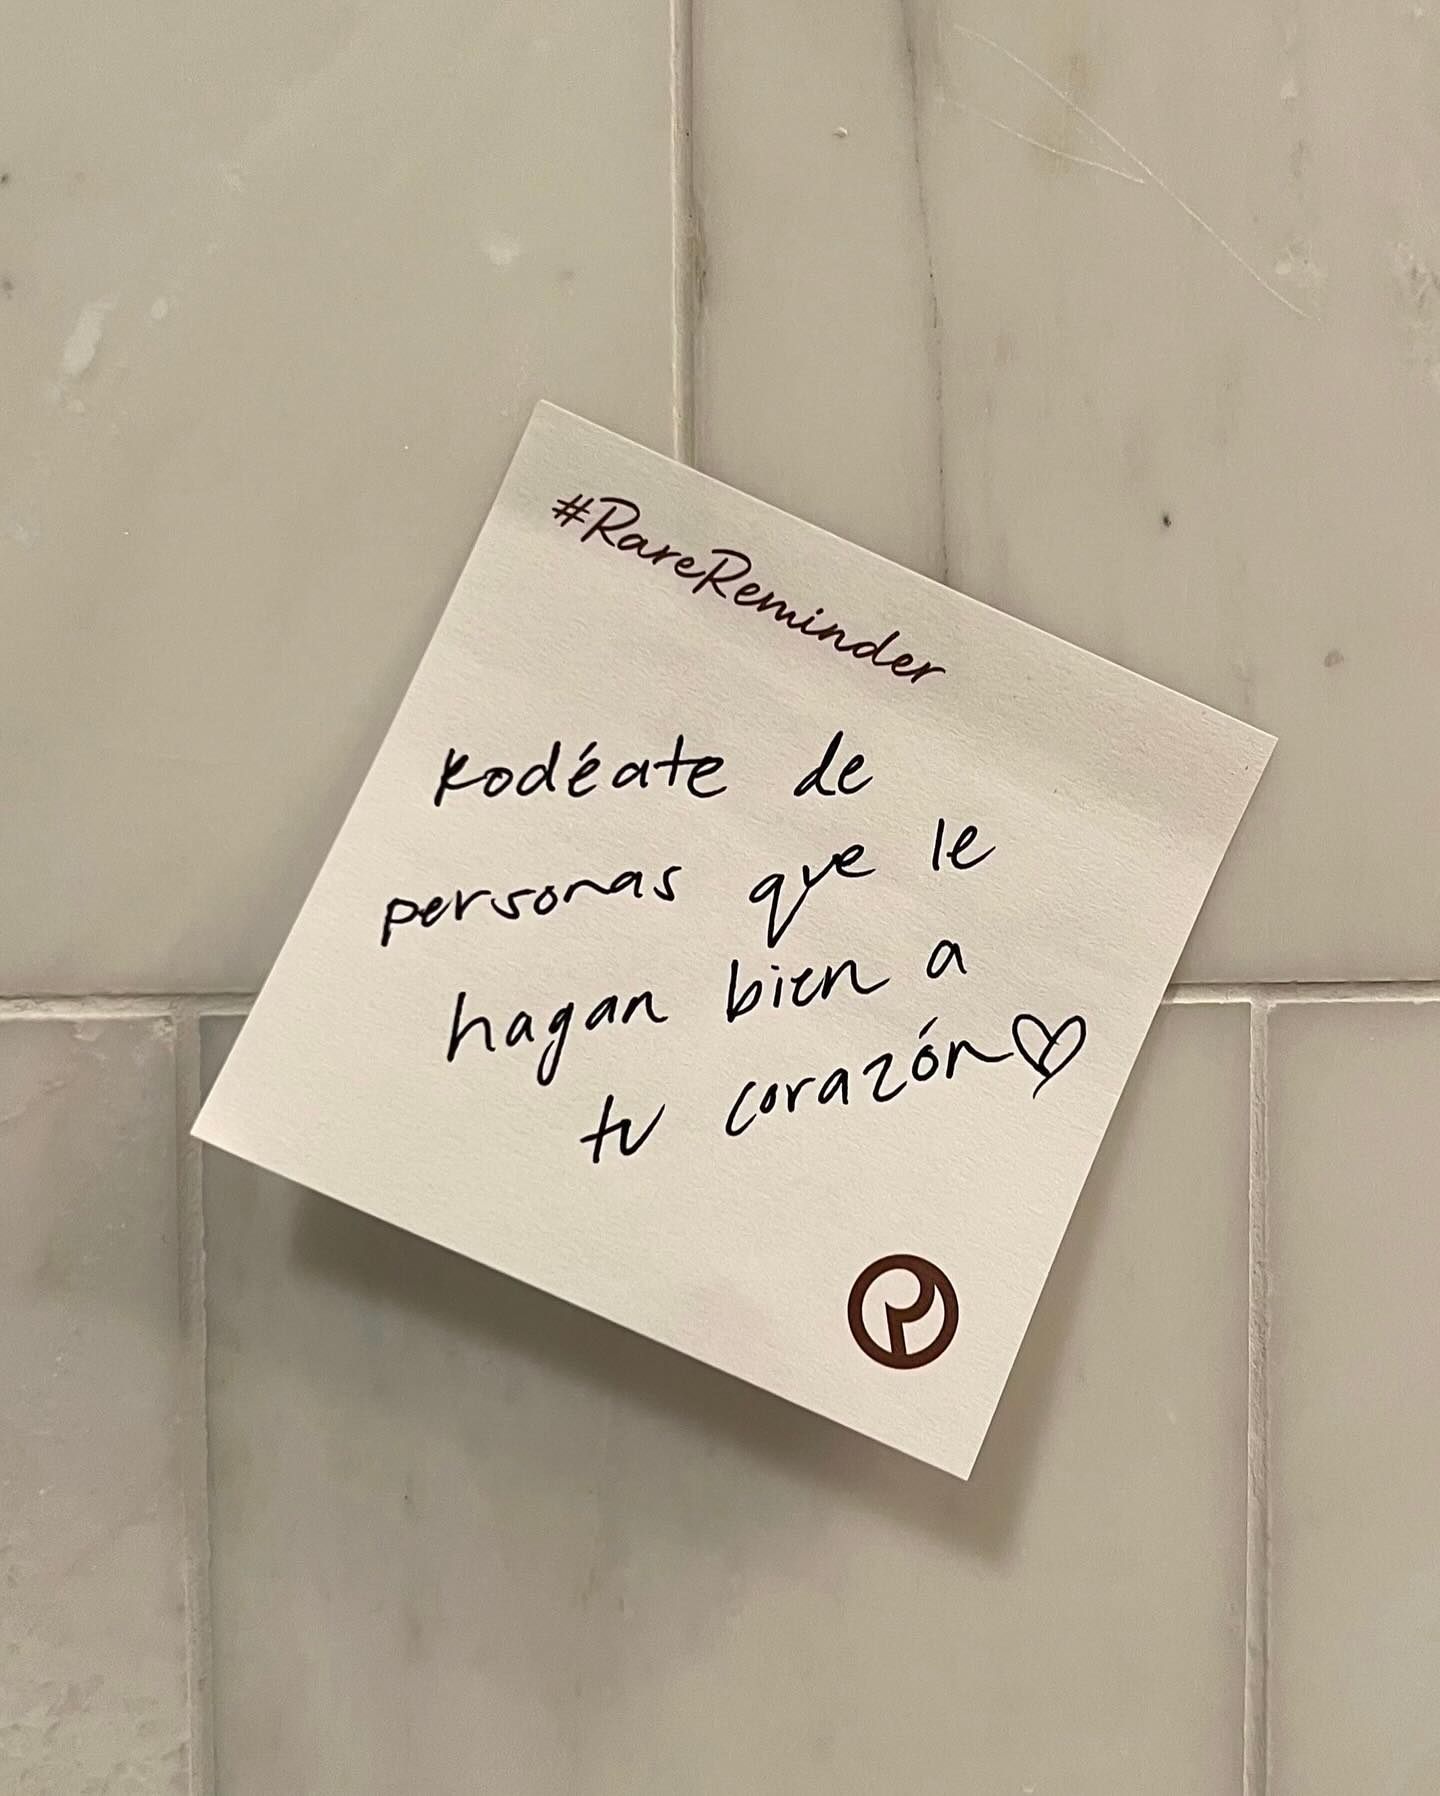 #RareReminder
Rodéate de
personas que le
hagan bien a
tu corazón